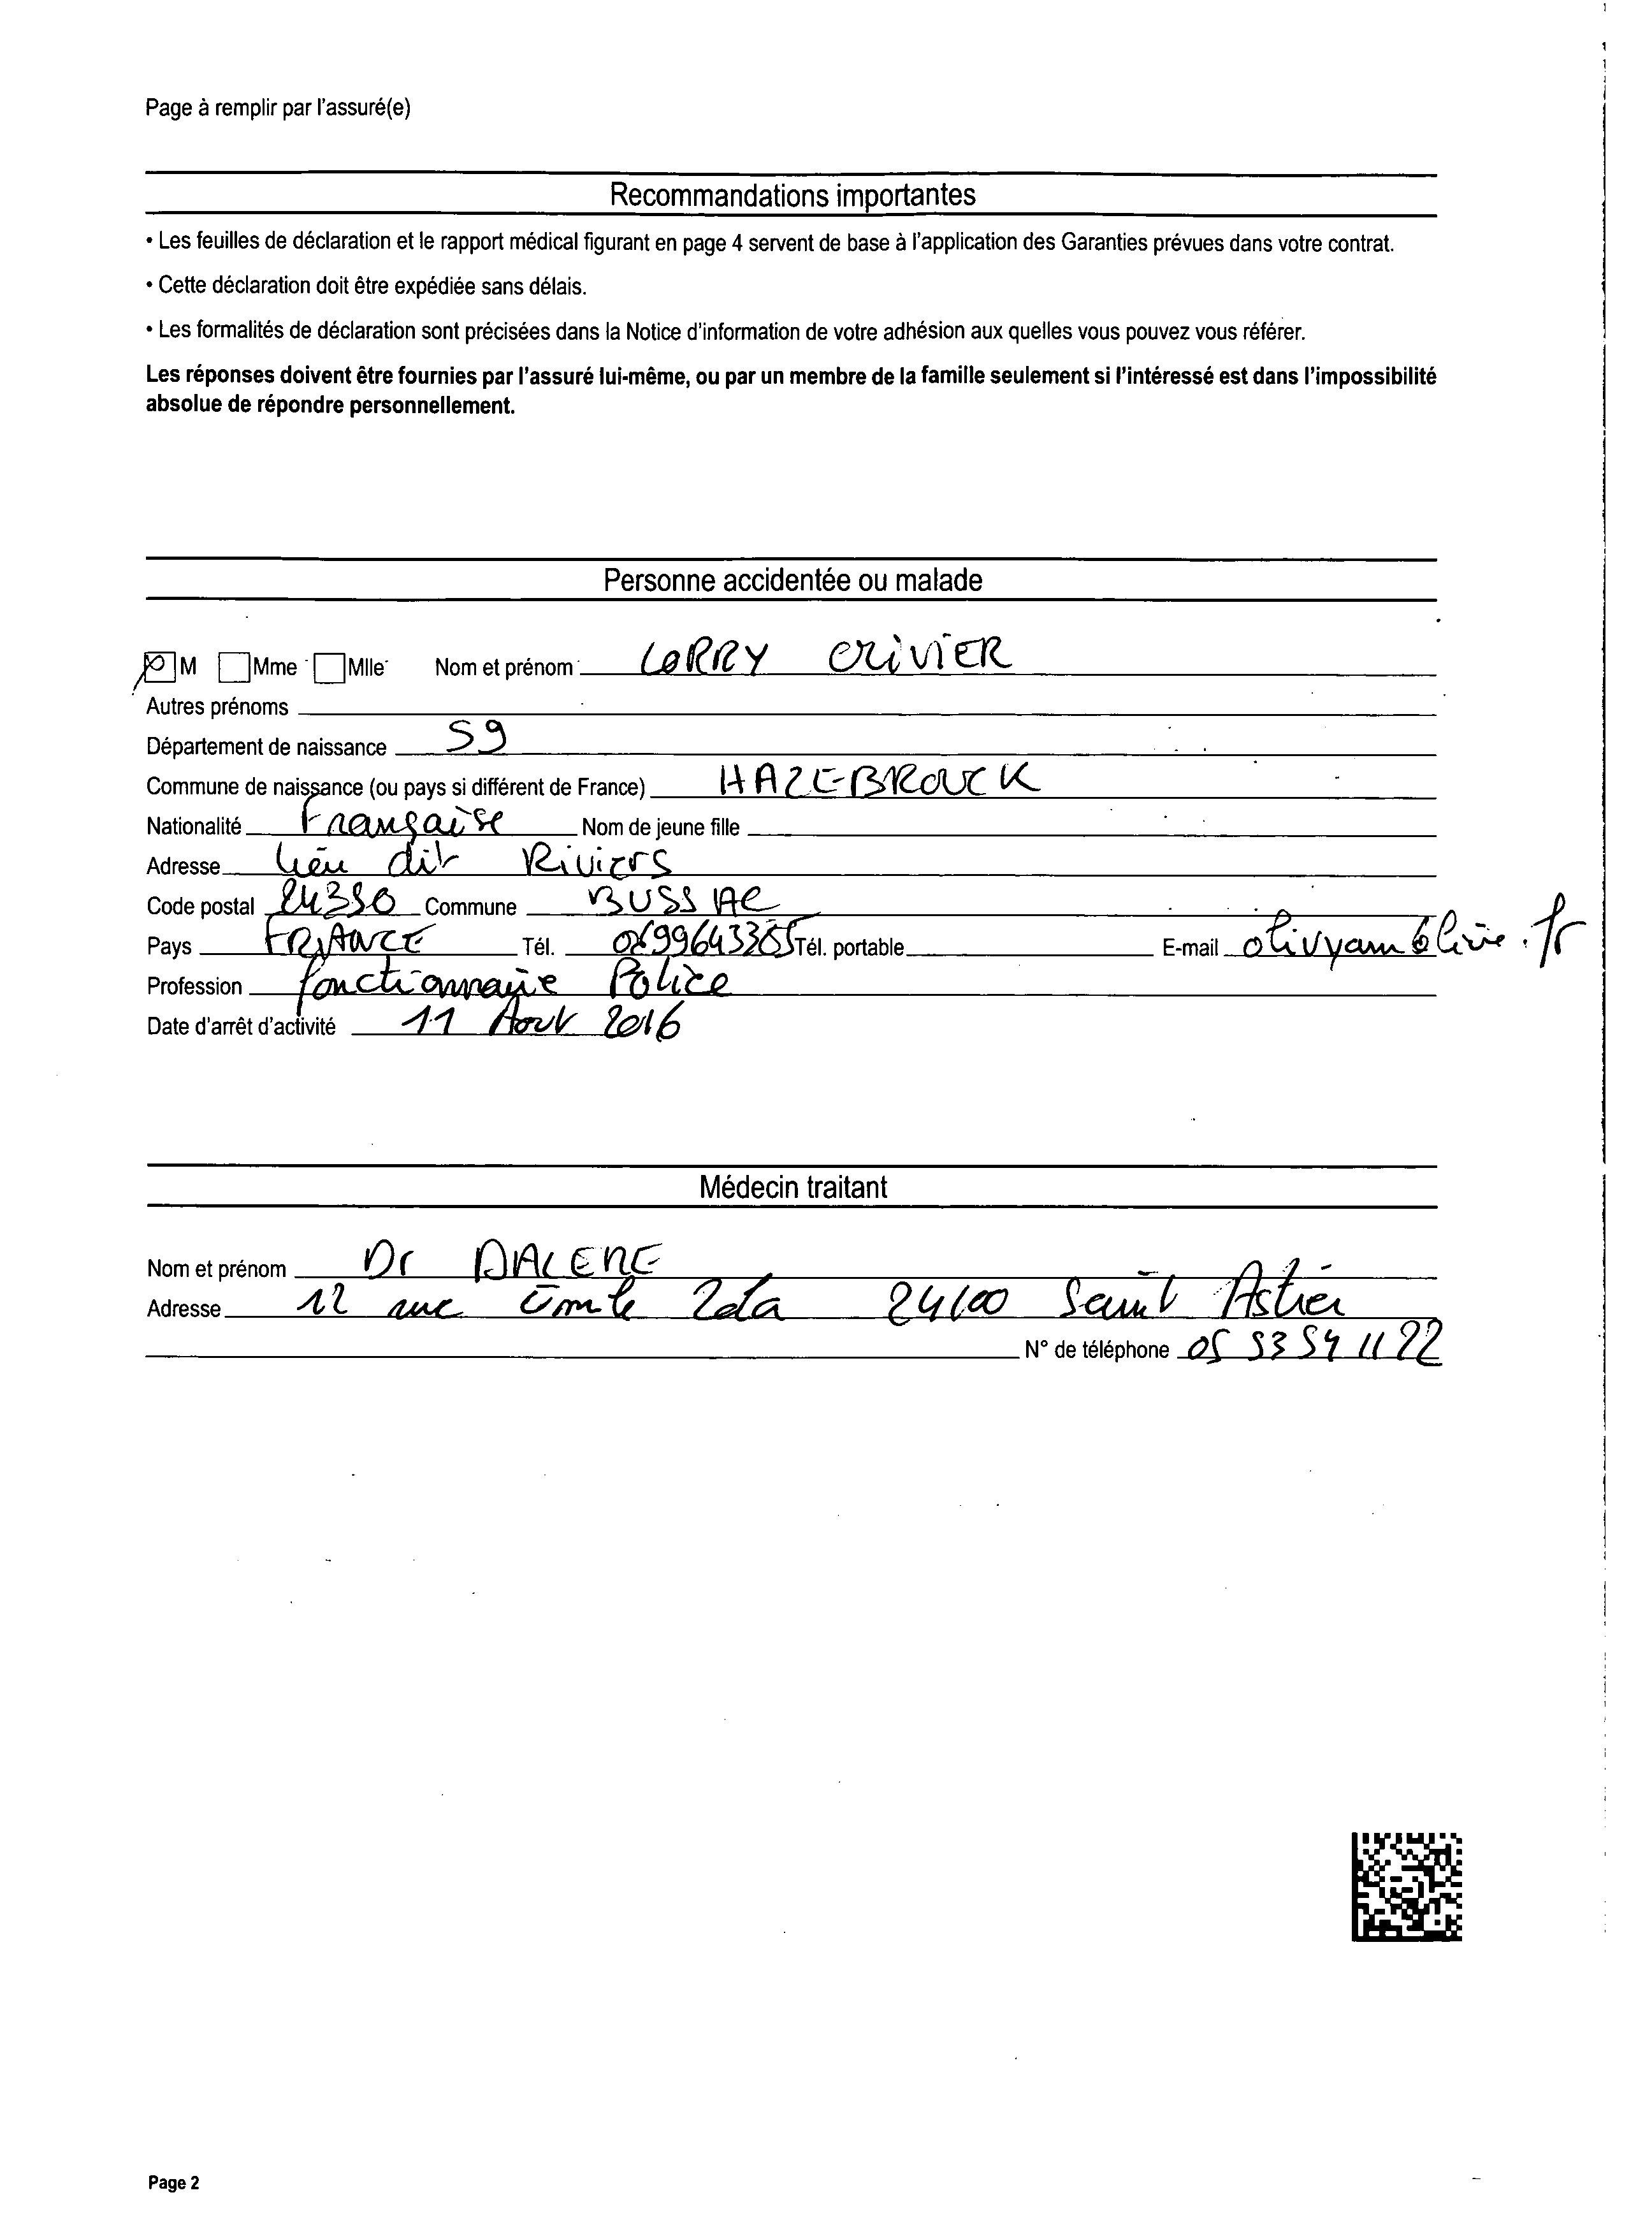 Page à remplir par l'assuré(e)
Recommandations importantes
• Les feuilles de déclaration et le rapport médical figurant en page 4 servent de base à l'application des Garanties prévues dans votre contrat.
• Cette déclaration doit être expédiée sans délais.
• Les formalités de déclaration sont précisées dans la Notice d'information de votre adhésion aux quelles vous pouvez vous référer.
Les réponses doivent être fournies par l'assuré lui-même, ou par un membre de la famille seulement si l'intéressé est dans l'impossibilité
absolue de répondre personnellement.
Personne accidentée ou malade
M Mme Mlle Nom et prénom LORRY OLIVIER
Autres prénoms
Département de naissance 59
Commune de naissance (ou pays si différent de France) HAZEBROUCK
Nationalité Française Nom de jeune fille
Adresse lieu dit Riviers
Code postal 24350 Commune BUSSAC
Pays FRANCE Tél. Tél. portable E-mail
Profession fonctionnaire Police
Date d'arrêt d'activité 11 Aout 2016
Médecin traitant
Nom et prénom Dr DALENE
Adresse 12 rue Emile Zola 24100 Saint Astier
N° de téléphone 05 53 54 11 22
Page 2